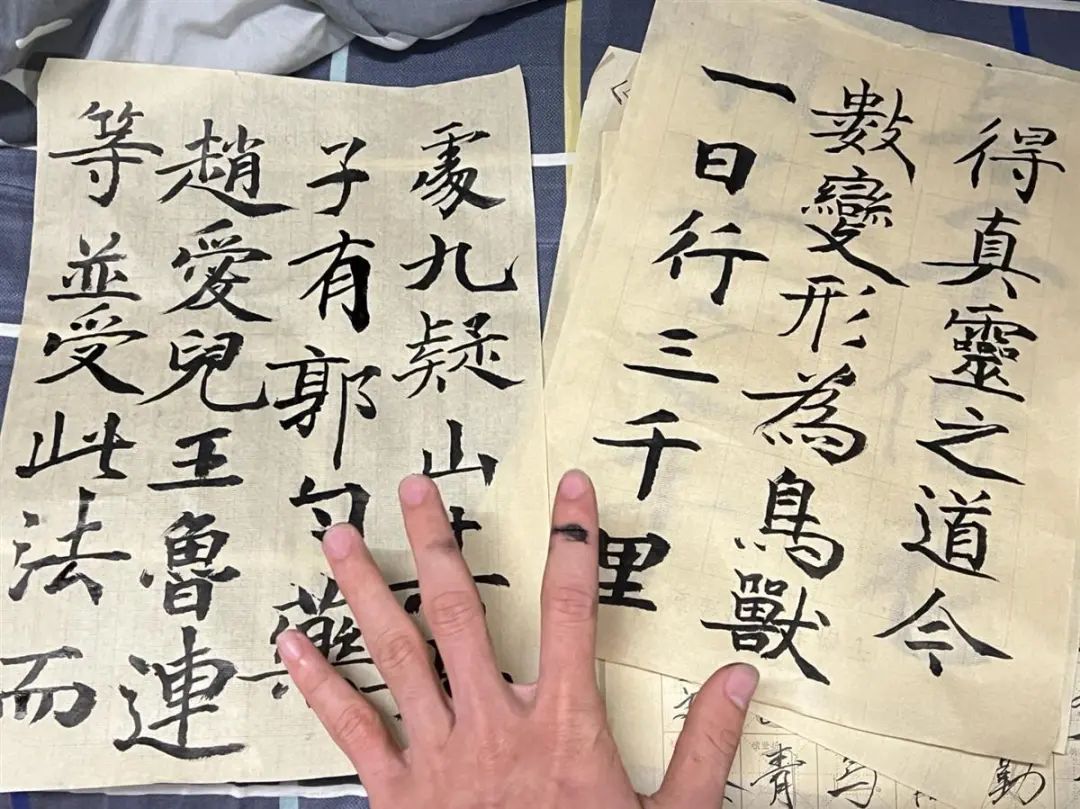 得真靈之道今
數變形為鳥獸
一日行三千里
處九疑山
子有郭勺藥
趙愛兒王魯連
等並受此法而
青
勤